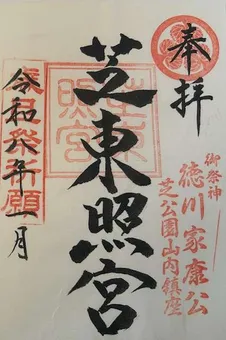 奉拝
御祭神
徳川家康公
芝公園山内鎮座
芝東照宮
令和八年一月